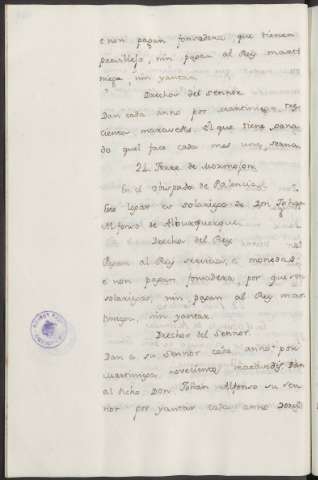 e non pagan fonsadera que tienen
previllejo, nin pagan al Rey mart
niega, nin yantar.
Derechos del Sennor
Dan cada anno por martiniega tres
cientos maravedis. El que tiene gana
do quel face cada mes una serna
24. Torre de Mormojon
En el obispado de Palencia.
Este logar es solariego de Don Johan
Alfonso de Alburquerque
Derechos del Rey
Pagan al Rey servicios, e monedas
e non pagan fonsadera, por que son
solariegos, nin pagan al Rey mar
tiniega, nin yantar.
Derechos del Sennor.
Dan a su Sennor cada anno por
martiniega novecientos maravedis. Dan
al dicho Don Johan Alfonso su sen
nor por yantar cada anno